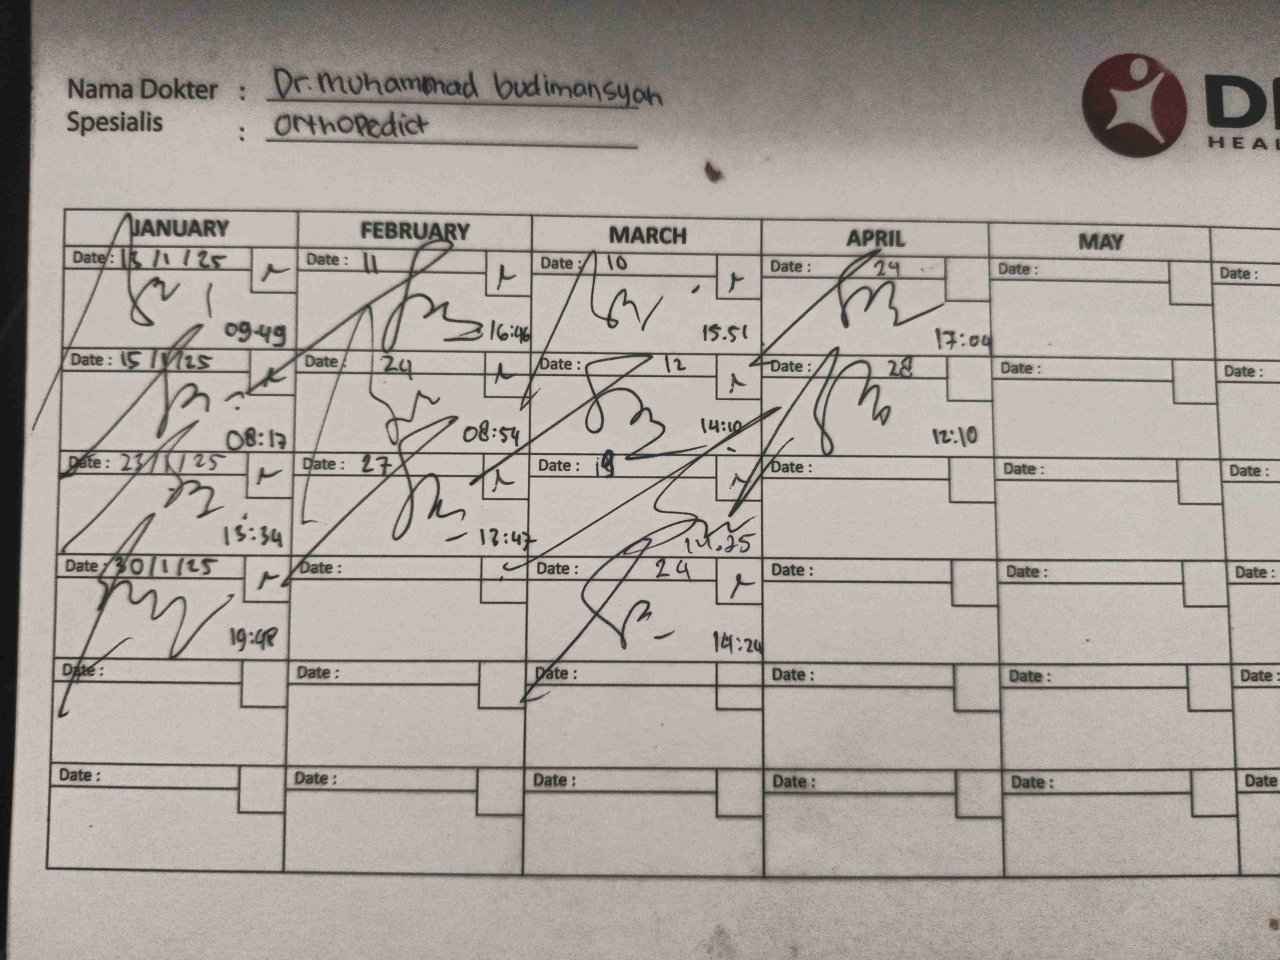 Nama Dokter : Dr. Muhammad budimansyah
Spesialis : Orthopedict
D
HEAL
JANUARY FEBRUARY MARCH APRIL MAY
Date : 13/1/25 Date : 11 Date : 10 Date : 24 Date : Date :
09:49 16:46 15.51 17:04
Date : 15/1/25 Date : 24 Date : 12 Date : 28 Date : Date :
08:17 08:54 14:10 12:10
Date : 23/1/25 Date : 27 Date : 19 Date : Date : Date :
13:34 13:47
Date : 30/1/25 Date : Date : 24 Date : Date : Date :
19:48 14:24
Date : Date : Date : Date : Date : Date :
Date : Date : Date : Date : Date : Date